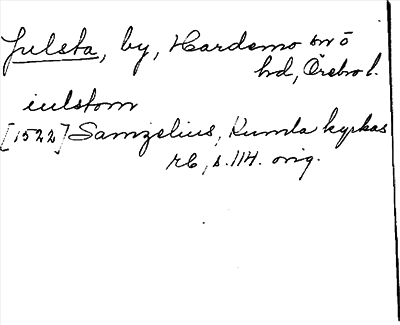 Julsta, by, Hardemo sn ö
hd, Örebro l.
iulstom
[1522] Samzelius, Kumla kyrkas
rb, s. 114. orig.